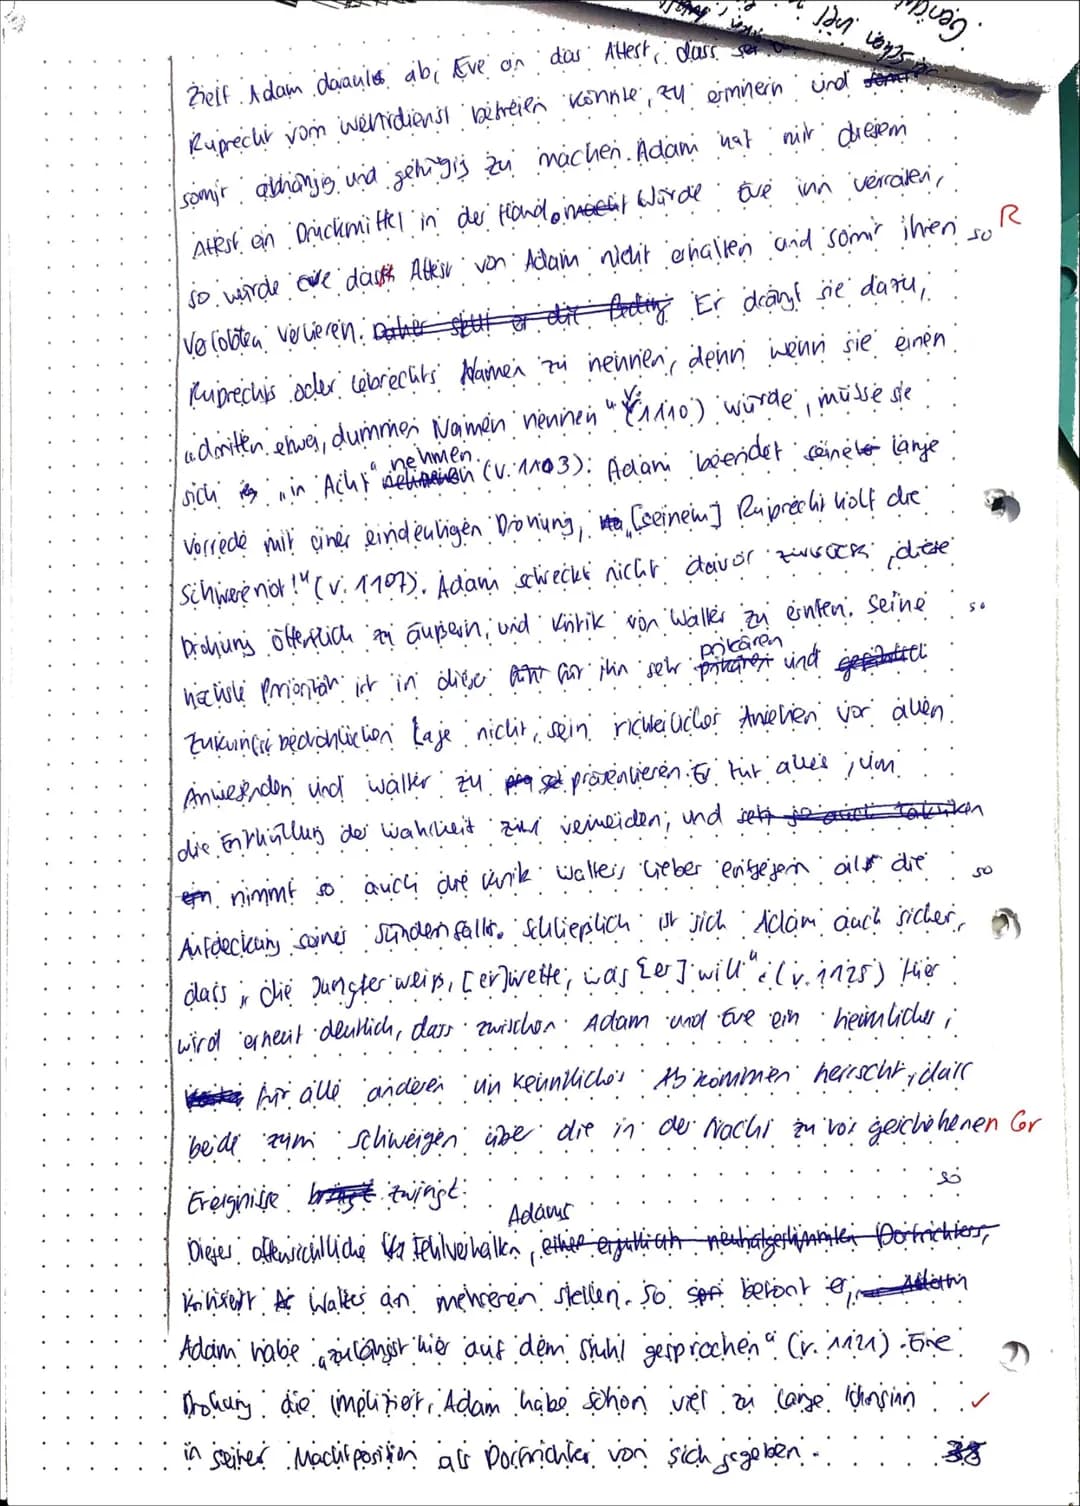 zielt Adam darauf ab, Eve an das Attest, dass
Ruprecht vom Wehrdienst befreien könnte, zu erinnern und
somit abhängig und gefügig zu machen. Adam hat mit diesem
Attest ein Druckmittel in der Hand. Würde Eve ihn verraten,
so würde Eve das Attest von Adam nicht erhalten und somit ihren so R
Verlobten verlieren. Er drängt sie dazu,
Ruprechts oder Lebrechts Namen zu nennen, denn wenn sie einen
„dritten etwa, dummen Namen nennen“ (V. 1110) würde, müsse sie
sich „in Acht“ nehmen (V. 1103). Adam beendet seine lange
Vorrede mit einer eindeutigen Drohung, „[seinem] Ruprecht holt die
Schwerenot!“ (V. 1107). Adam schreckt nicht davor zurück, diese
Drohung öffentlich zu äußern, und Kritik von Walter zu ernten. Seine so
höchste Priorität ist in dieser für ihn sehr prikären und
Zukunfts bedrohlichen Lage nicht, sein richterliches Ansehen vor allen
Anwesenden und Walter zu präsentieren. Er tut alles, um
die Enthüllung der Wahrheit zu vermeiden, und
nimmt so auch die Kritik Walters lieber entgegen als die so
Aufdeckung seines Sündenfalls. Schließlich ist sich Adam auch sicher,
dass „die Jungfer weiß, [er] wette, was [er] will“. (V. 1125) Hier
wird erneut deutlich, dass zwischen Adam und Eve ein heimliches,
für alle anderen unkenntliches Abkommen herrscht, dass
beide zum Schweigen über die in der Nacht zu vor geschehenen Gr
Ereignisse zwingt. so
Dieses offensichtliche Fehlverhalten Adams,
kritisiert Walter an mehreren Stellen. So betont er,
Adam habe „zulängst hier auf dem Stuhl gesprochen“ (V. 1121). Eine
Drohung die impliziert, Adam habe schon viel zu lange Unsinn ✓
in seiner Machtposition als Dorfrichter von sich gegeben.